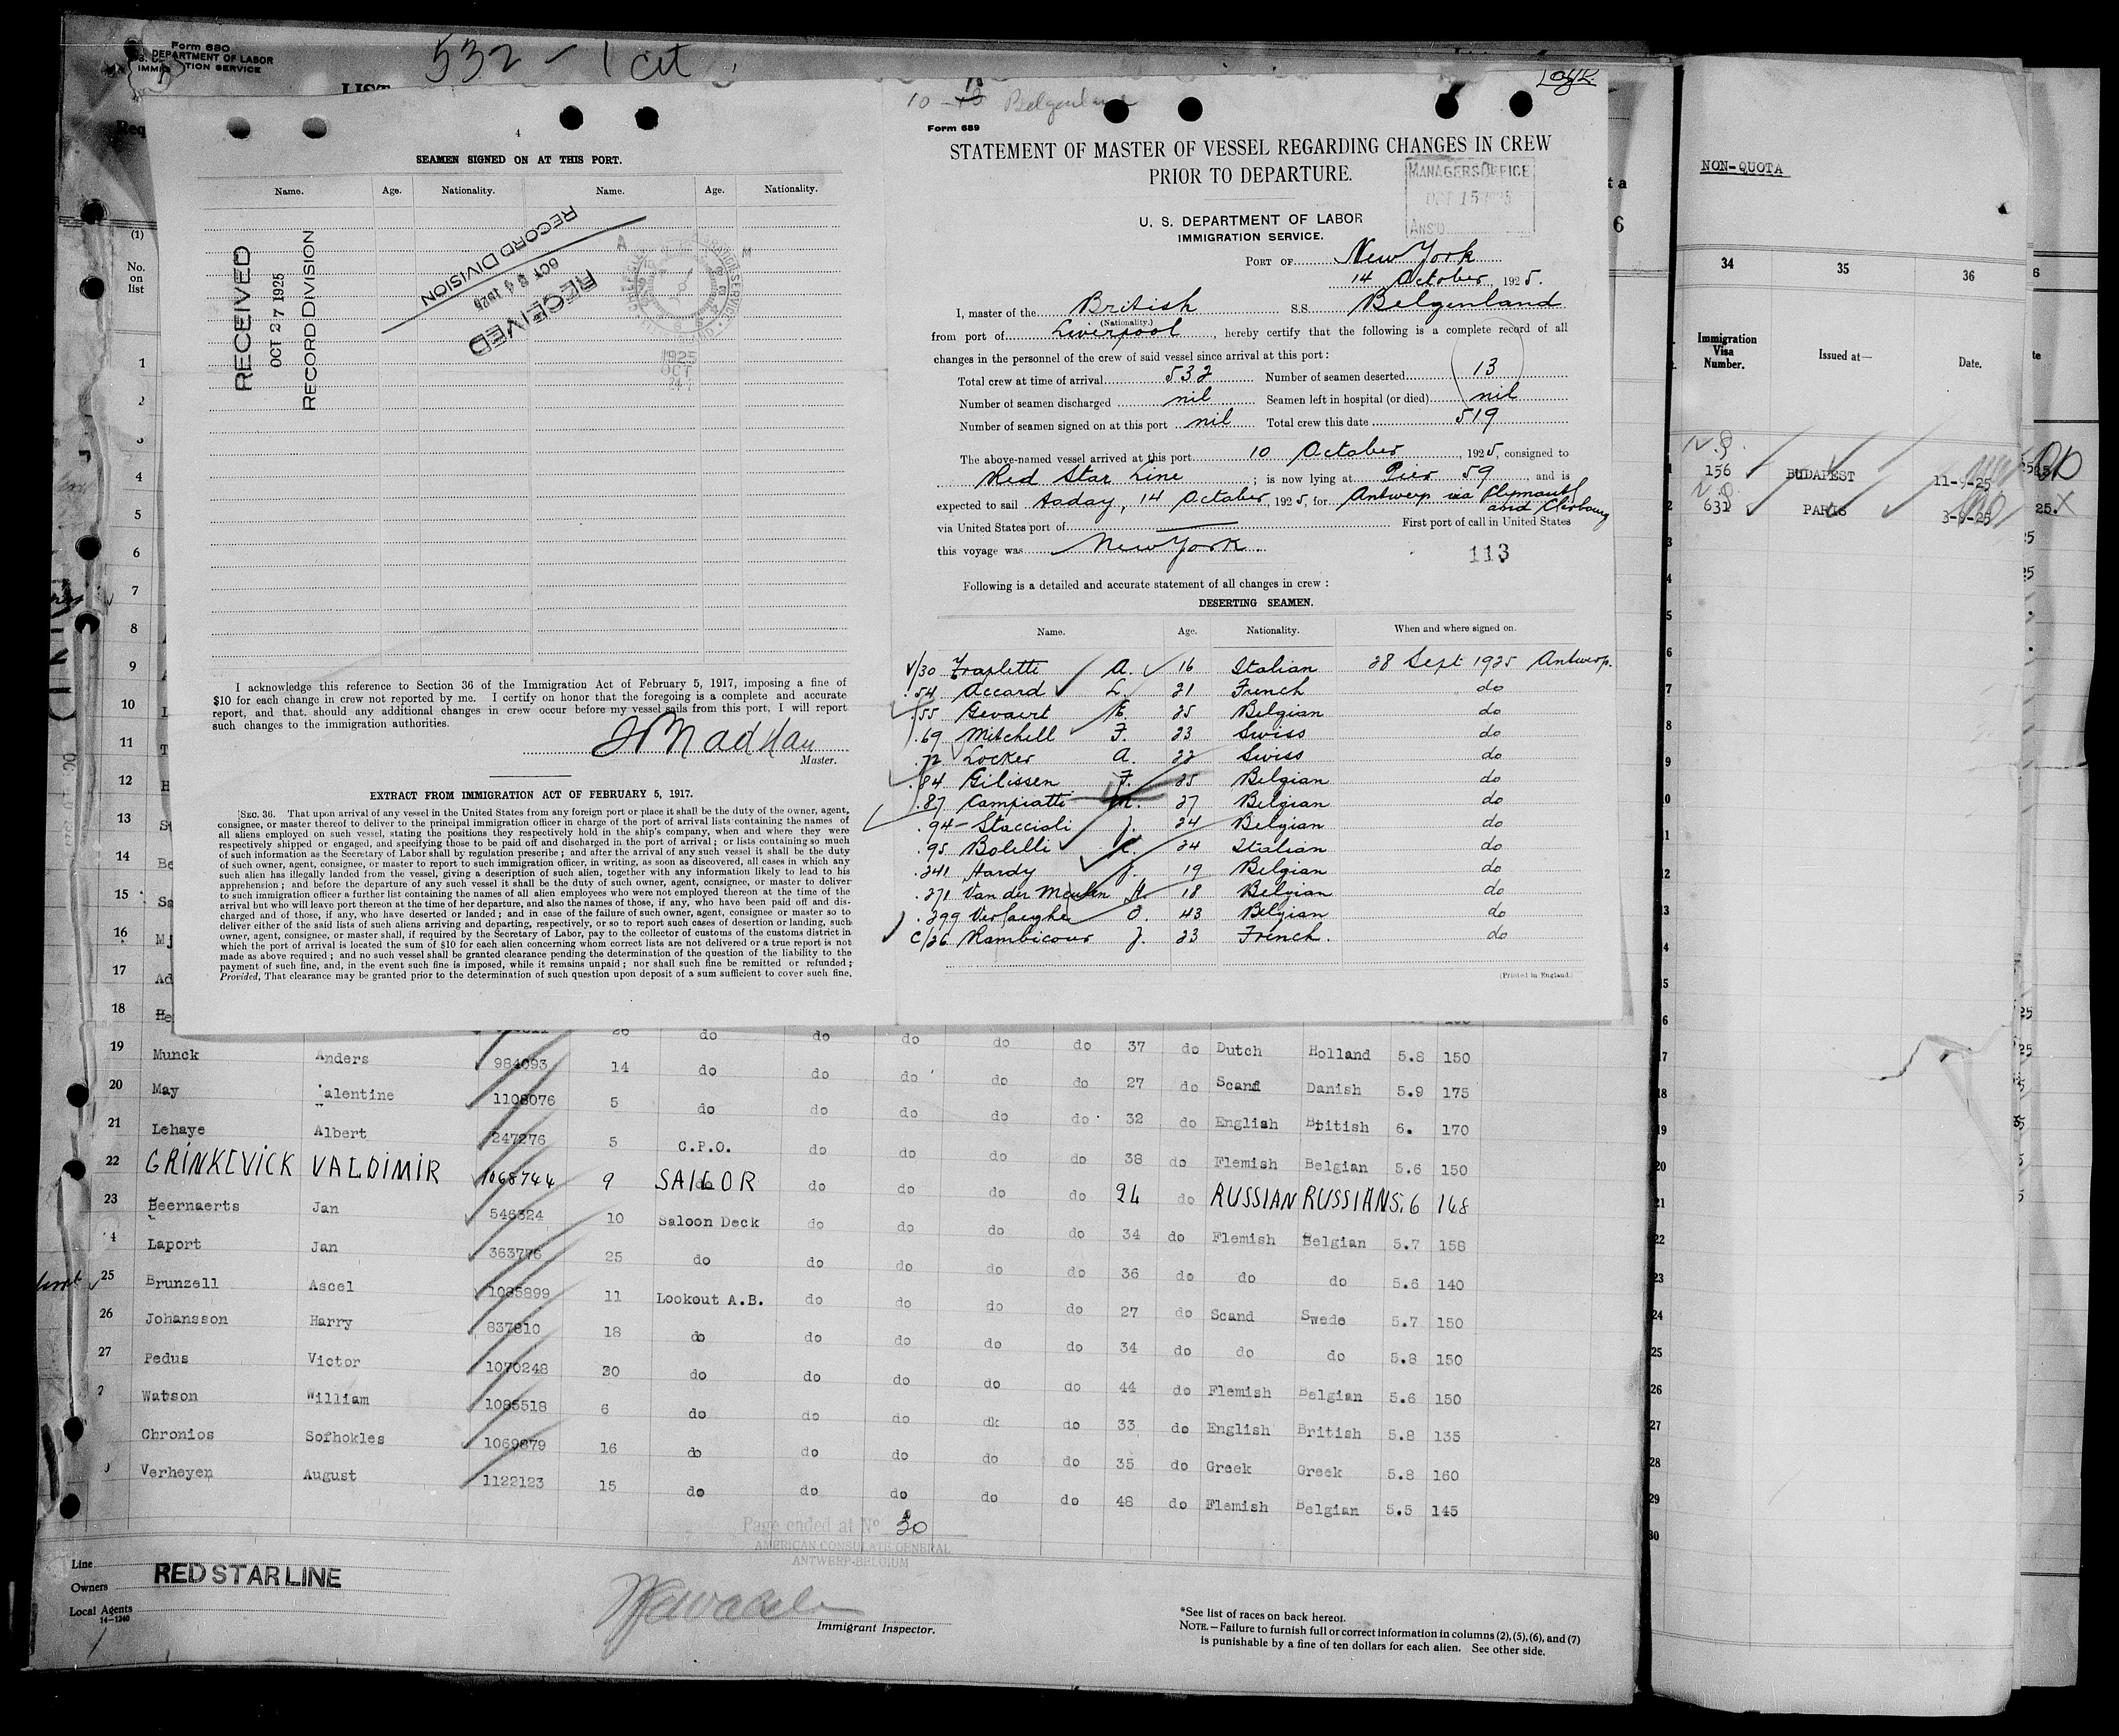 Form 680
U.S. DEPARTMENT OF LABOR
IMMIGRATION SERVICE
532 - 1 cit
LIST
(1)
No.
on
list
4
SEAMEN SIGNED ON AT THIS PORT.
Name. Age. Nationality. Name. Age. Nationality.
RECEIVED
OCT 27 1925
RECORD DIVISION
RECEIVED
OCT 24 1925
RECORD DIVISION
1925
OCT
24
I acknowledge this reference to Section 36 of the Immigration Act of February 5, 1917, imposing a fine of
$10 for each change in crew not reported by me. I certify on honor that the foregoing is a complete and accurate
report, and that, should any additional changes in crew occur before my vessel sails from this port, I will report
such changes to the immigration authorities.
Master.
EXTRACT FROM IMMIGRATION ACT OF FEBRUARY 5, 1917.
SEC. 36. That upon arrival of any vessel in the United States from any foreign port or place it shall be the duty of the owner, agent,
consignee, or master thereof to deliver to the principal immigration officer in charge of the port of arrival lists containing the names of
all aliens employed on such vessel, stating the positions they respectively hold in the ship's company, when and where they were
respectively shipped or engaged, and specifying those to be paid off and discharged in the port of arrival; or lists containing so much
of such information as the Secretary of Labor shall by regulation prescribe; and after the arrival of any such vessel it shall be the duty
of such owner, agent, consignee, or master to report to such immigration officer, in writing, as soon as discovered, all cases in which any
such alien has illegally landed from the vessel, giving a description of such alien, together with any information likely to lead to his
apprehension; and before the departure of any such vessel it shall be the duty of such owner, agent, consignee, or master to deliver
to such immigration officer a further list containing the names of all alien employees who were not employed thereon at the time of the
arrival but who will leave port thereon at the time of her departure, and also the names of those, if any, who have been paid off and dis-
charged and of those, if any, who have deserted or landed; and in case of the failure of such owner, agent, consignee or master so to
deliver either of the said lists of such aliens arriving and departing, respectively, or so to report such cases of desertion or landing, such
owner, agent, consignee, or master shall, if required by the Secretary of Labor, pay to the collector of customs of the customs district in
which the port of arrival is located the sum of $10 for each alien concerning whom correct lists are not delivered or a true report is not
made as above required; and no such vessel shall be granted clearance pending the determination of the question of the liability to the
payment of such fine, and, in the event such fine is imposed, while it remains unpaid; nor shall such fine be remitted or refunded;
Provided, That clearance may be granted prior to the determination of such question upon deposit of a sum sufficient to cover such fine.
Belgenland
Form 689
STATEMENT OF MASTER OF VESSEL REGARDING CHANGES IN CREW
PRIOR TO DEPARTURE.
MANAGERS OFFICE
OCT 15 1925
ANS'D
U. S. DEPARTMENT OF LABOR
IMMIGRATION SERVICE.
PORT OF New York
14 October, 1925.
I, master of the British S.S. Belgenland
(Nationality.)
from port of Liverpool, hereby certify that the following is a complete record of all
changes in the personnel of the crew of said vessel since arrival at this port:
Total crew at time of arrival 532 Number of seamen deserted 13
Number of seamen discharged nil Seamen left in hospital (or died) nil
Number of seamen signed on at this port nil Total crew this date 519
The above-named vessel arrived at this port 10 October, 1925, consigned to
Red Star Line; is now lying at Pier 59 and is
expected to sail today, 14 October, 1925, for Antwerp via Plymouth
and Cherbourg
via United States port of First port of call in United States
this voyage was New York.
113
Following is a detailed and accurate statement of all changes in crew:
DESERTING SEAMEN.
Name. Age. Nationality. When and where signed on.
V/30 Fraplette A. 16 Italian 28 Sept 1925 Antwerp.
54 Accard L. 21 French do
55 Gevaert E. 25 Belgian do
69 Mitchell F. 23 Swiss do
72 Locker A. 22 Swiss do
84 Gilissen F. 25 Belgian do
87 Campiatti M. 27 Belgian do
94 Staccioli J. 24 Belgian do
95 Bolelli 24 Italian do
241 Hardy J. 19 Belgian do
271 Van der Meulen H. 18 Belgian do
299 Verlaeghe O. 43 Belgian do
C/26 Rambicour J. 23 French. do
(Printed in England.)
1
2
3
4
5
6
7
8
9
10
11
12
13
14
15
16
17
18
19 Munck Anders 984093 14 do do do do do 37 do Dutch Holland 5.8 150
20 May Valentine 1108076 5 do do do do do 27 do Scand Danish 5.9 175
21 Lehaye Albert 247276 5 C.P.O. do do do do 32 do English British 6. 170
22 GRINKEVICK VALDIMIR 1068744 9 SAILOR do do do do 38 do Flemish Belgian 5.6 150
23 Beernaerts Jan 546324 10 Saloon Deck do do do do 24 do RUSSIAN RUSSIAN 5.6 168
Laport Jan 363776 25 do do do do do 34 do Flemish Belgian 5.7 158
25 Brunzell Ascel 1085899 11 Lookout A.B. do do do do 36 do do do 5.6 140
26 Johansson Harry 837810 18 do do do do do 27 do Scand Swede 5.7 150
27 Pedus Victor 1070248 30 do do do do do 34 do do do 5.8 150
Watson William 1085518 6 do do do do do 44 do Flemish Belgian 5.6 150
Chronios Sofhokles 1069879 16 do do do dk do 33 do English British 5.8 135
Verheyen August 1122123 15 do do do do do 35 do Greek Greek 5.8 160
do do 48 do Flemish Belgian 5.5 145
Page ended at No 30
AMERICAN CONSULATE GENERAL
ANTWERP-BELGIUM
Line
Owners RED STAR LINE
Local Agents
14-1240
Immigrant Inspector.
*See list of races on back hereof.
NOTE.—Failure to furnish full or correct information in columns (2), (5), (6), and (7)
is punishable by a fine of ten dollars for each alien. See other side.
NON-QUOTA
34 35 36
Immigration
Visa
Number. Issued at— Date.
156 BUDAPEST 11-9-25
631 PARIS 3-9-25